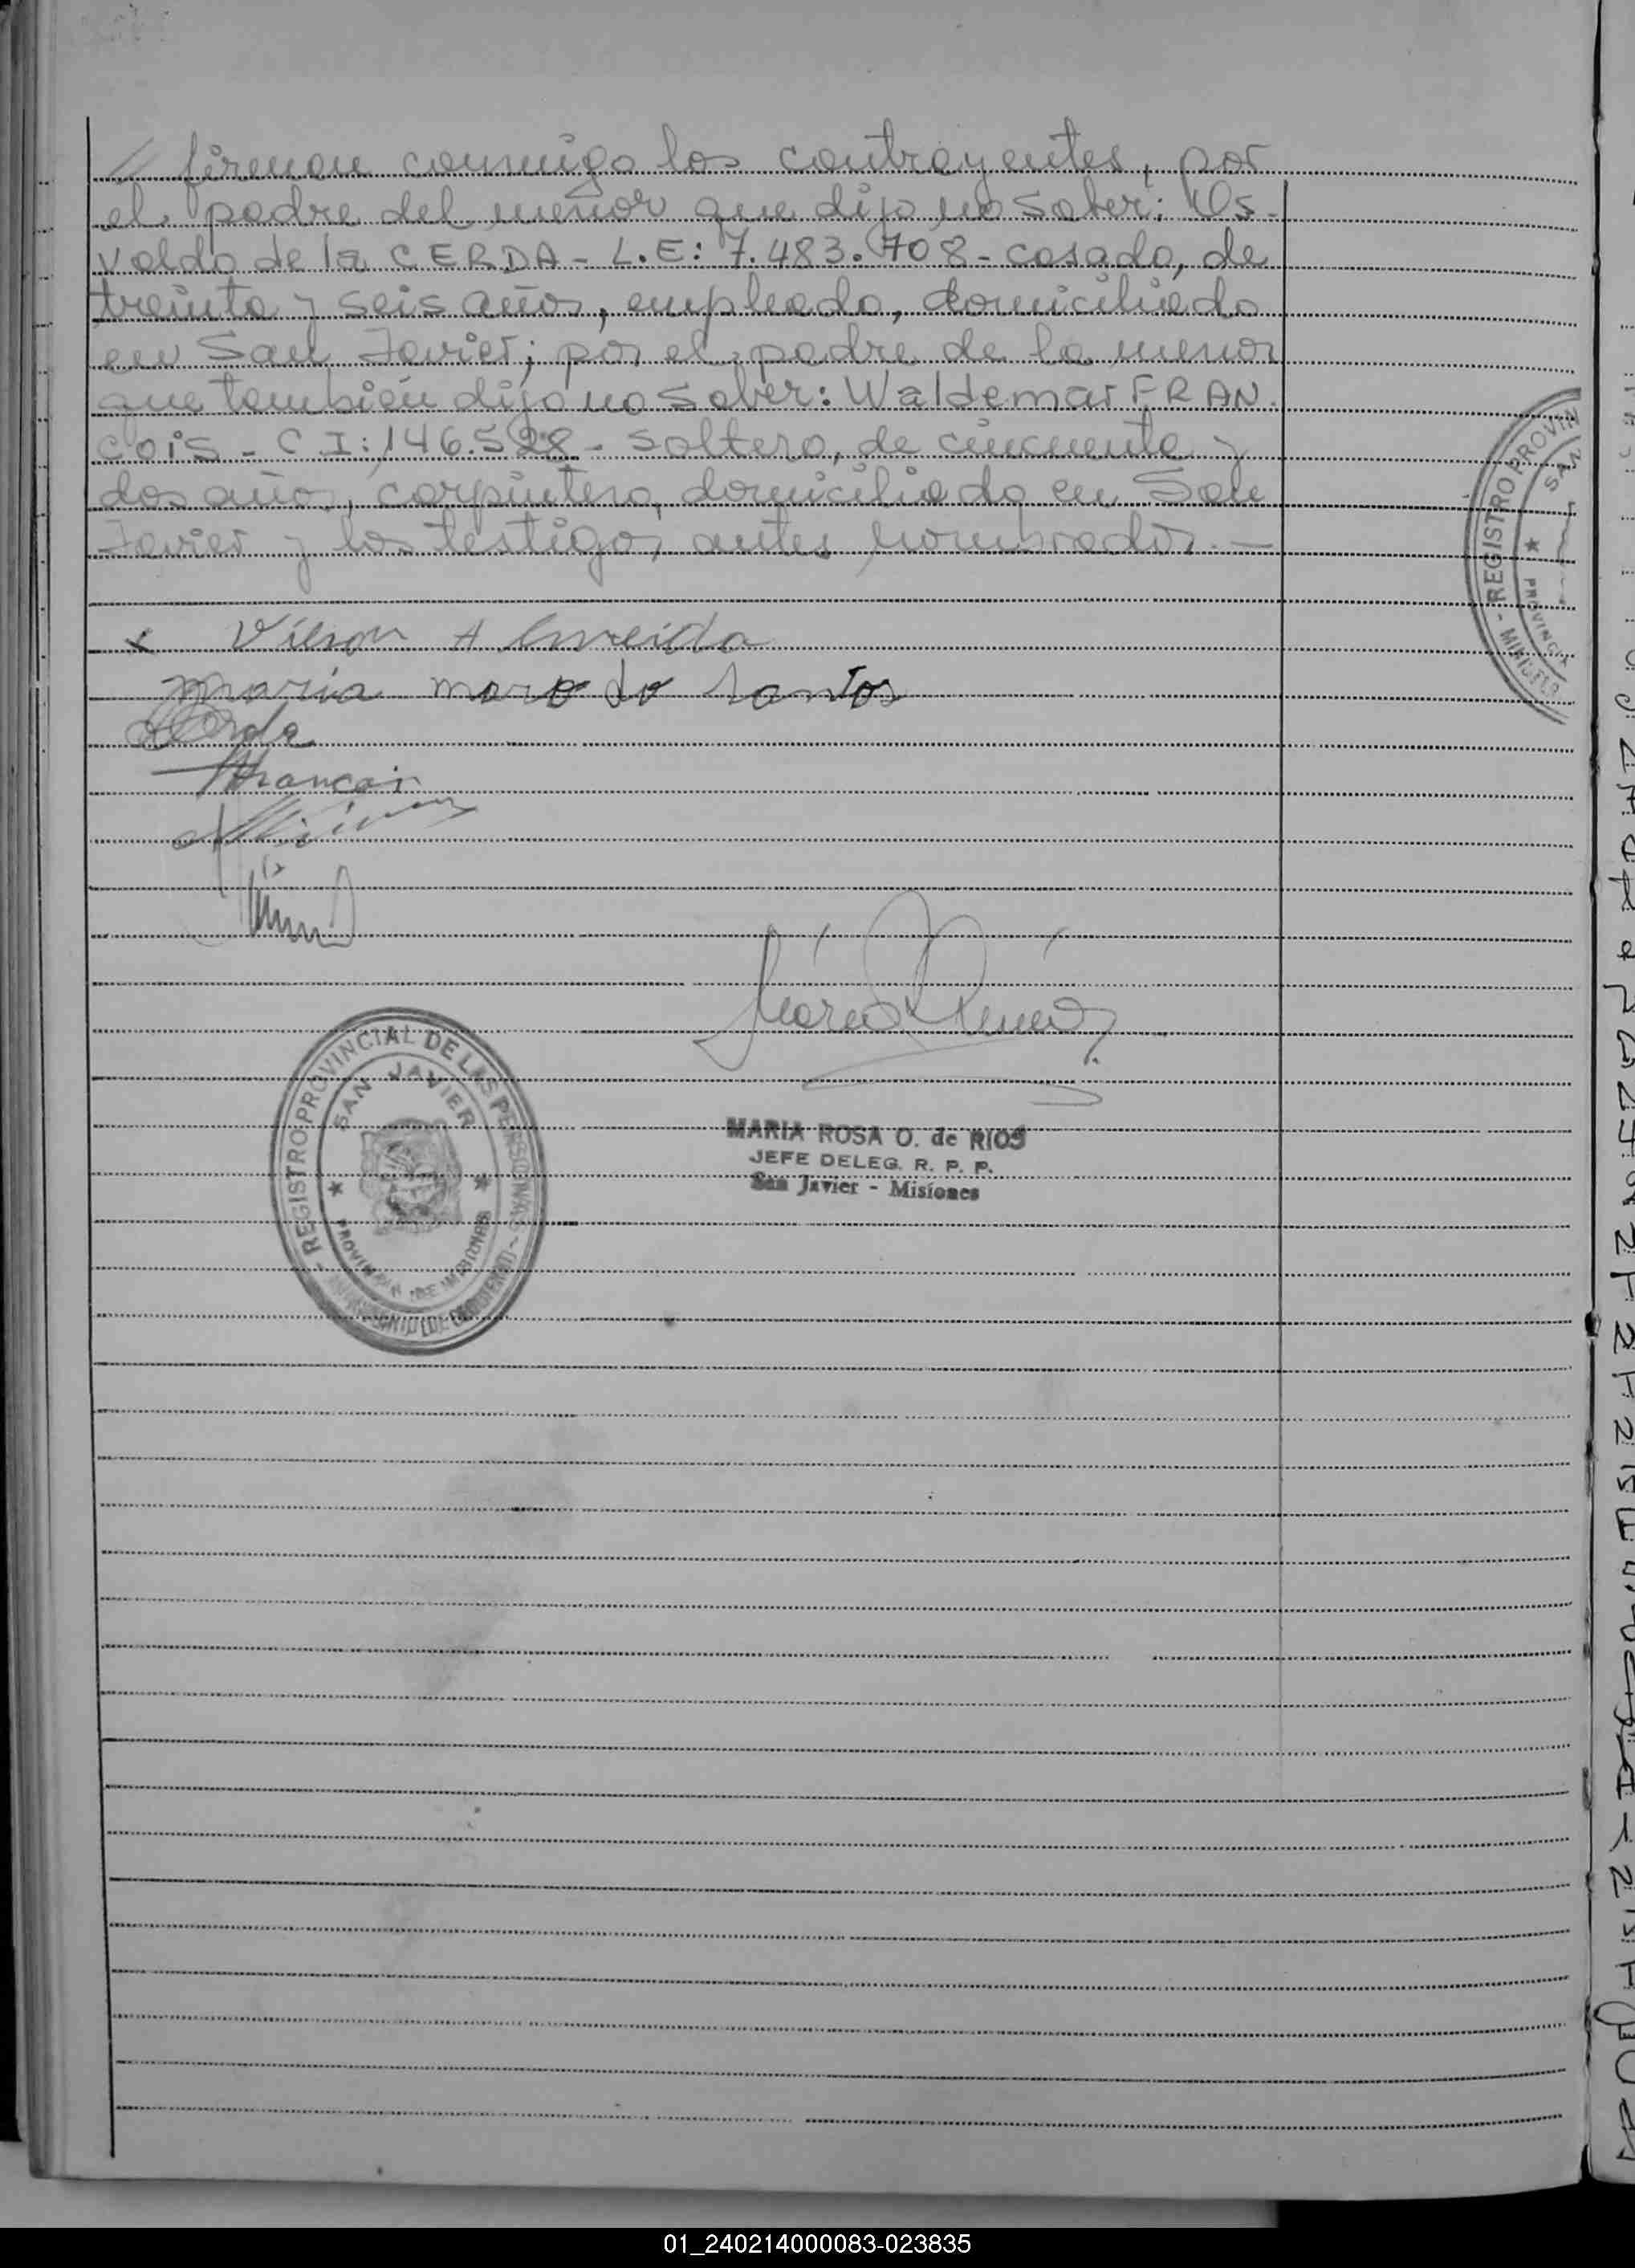 // firman conmigo los contrayentes, por
el padre del menor que dijo no saber: Os-
valdo de la CERDA - L.E: 7.483.708 - casado, de
treinta y seis años, empleado, domiciliado
en San Javier; por el padre de la menor
que también dijo no saber: Waldemar FRAN.
COIS - C I: 146.528 - soltero, de cincuenta y
dos años, carpintero, domiciliado en San
Javier y los testigos antes nombrados. —
x Vilson Almeida
maria
santos
REGISTRO PROVINCIAL DE LAS PERSONAS
SAN JAVIER
PROVINCIA DE MISIONES
MARIA ROSA O. de RIOS
JEFE DELEG. R. P. P.
San Javier - Misiones
- REGISTRO PROVIN
SAN
PROVINCIA
01_240214000083-023835